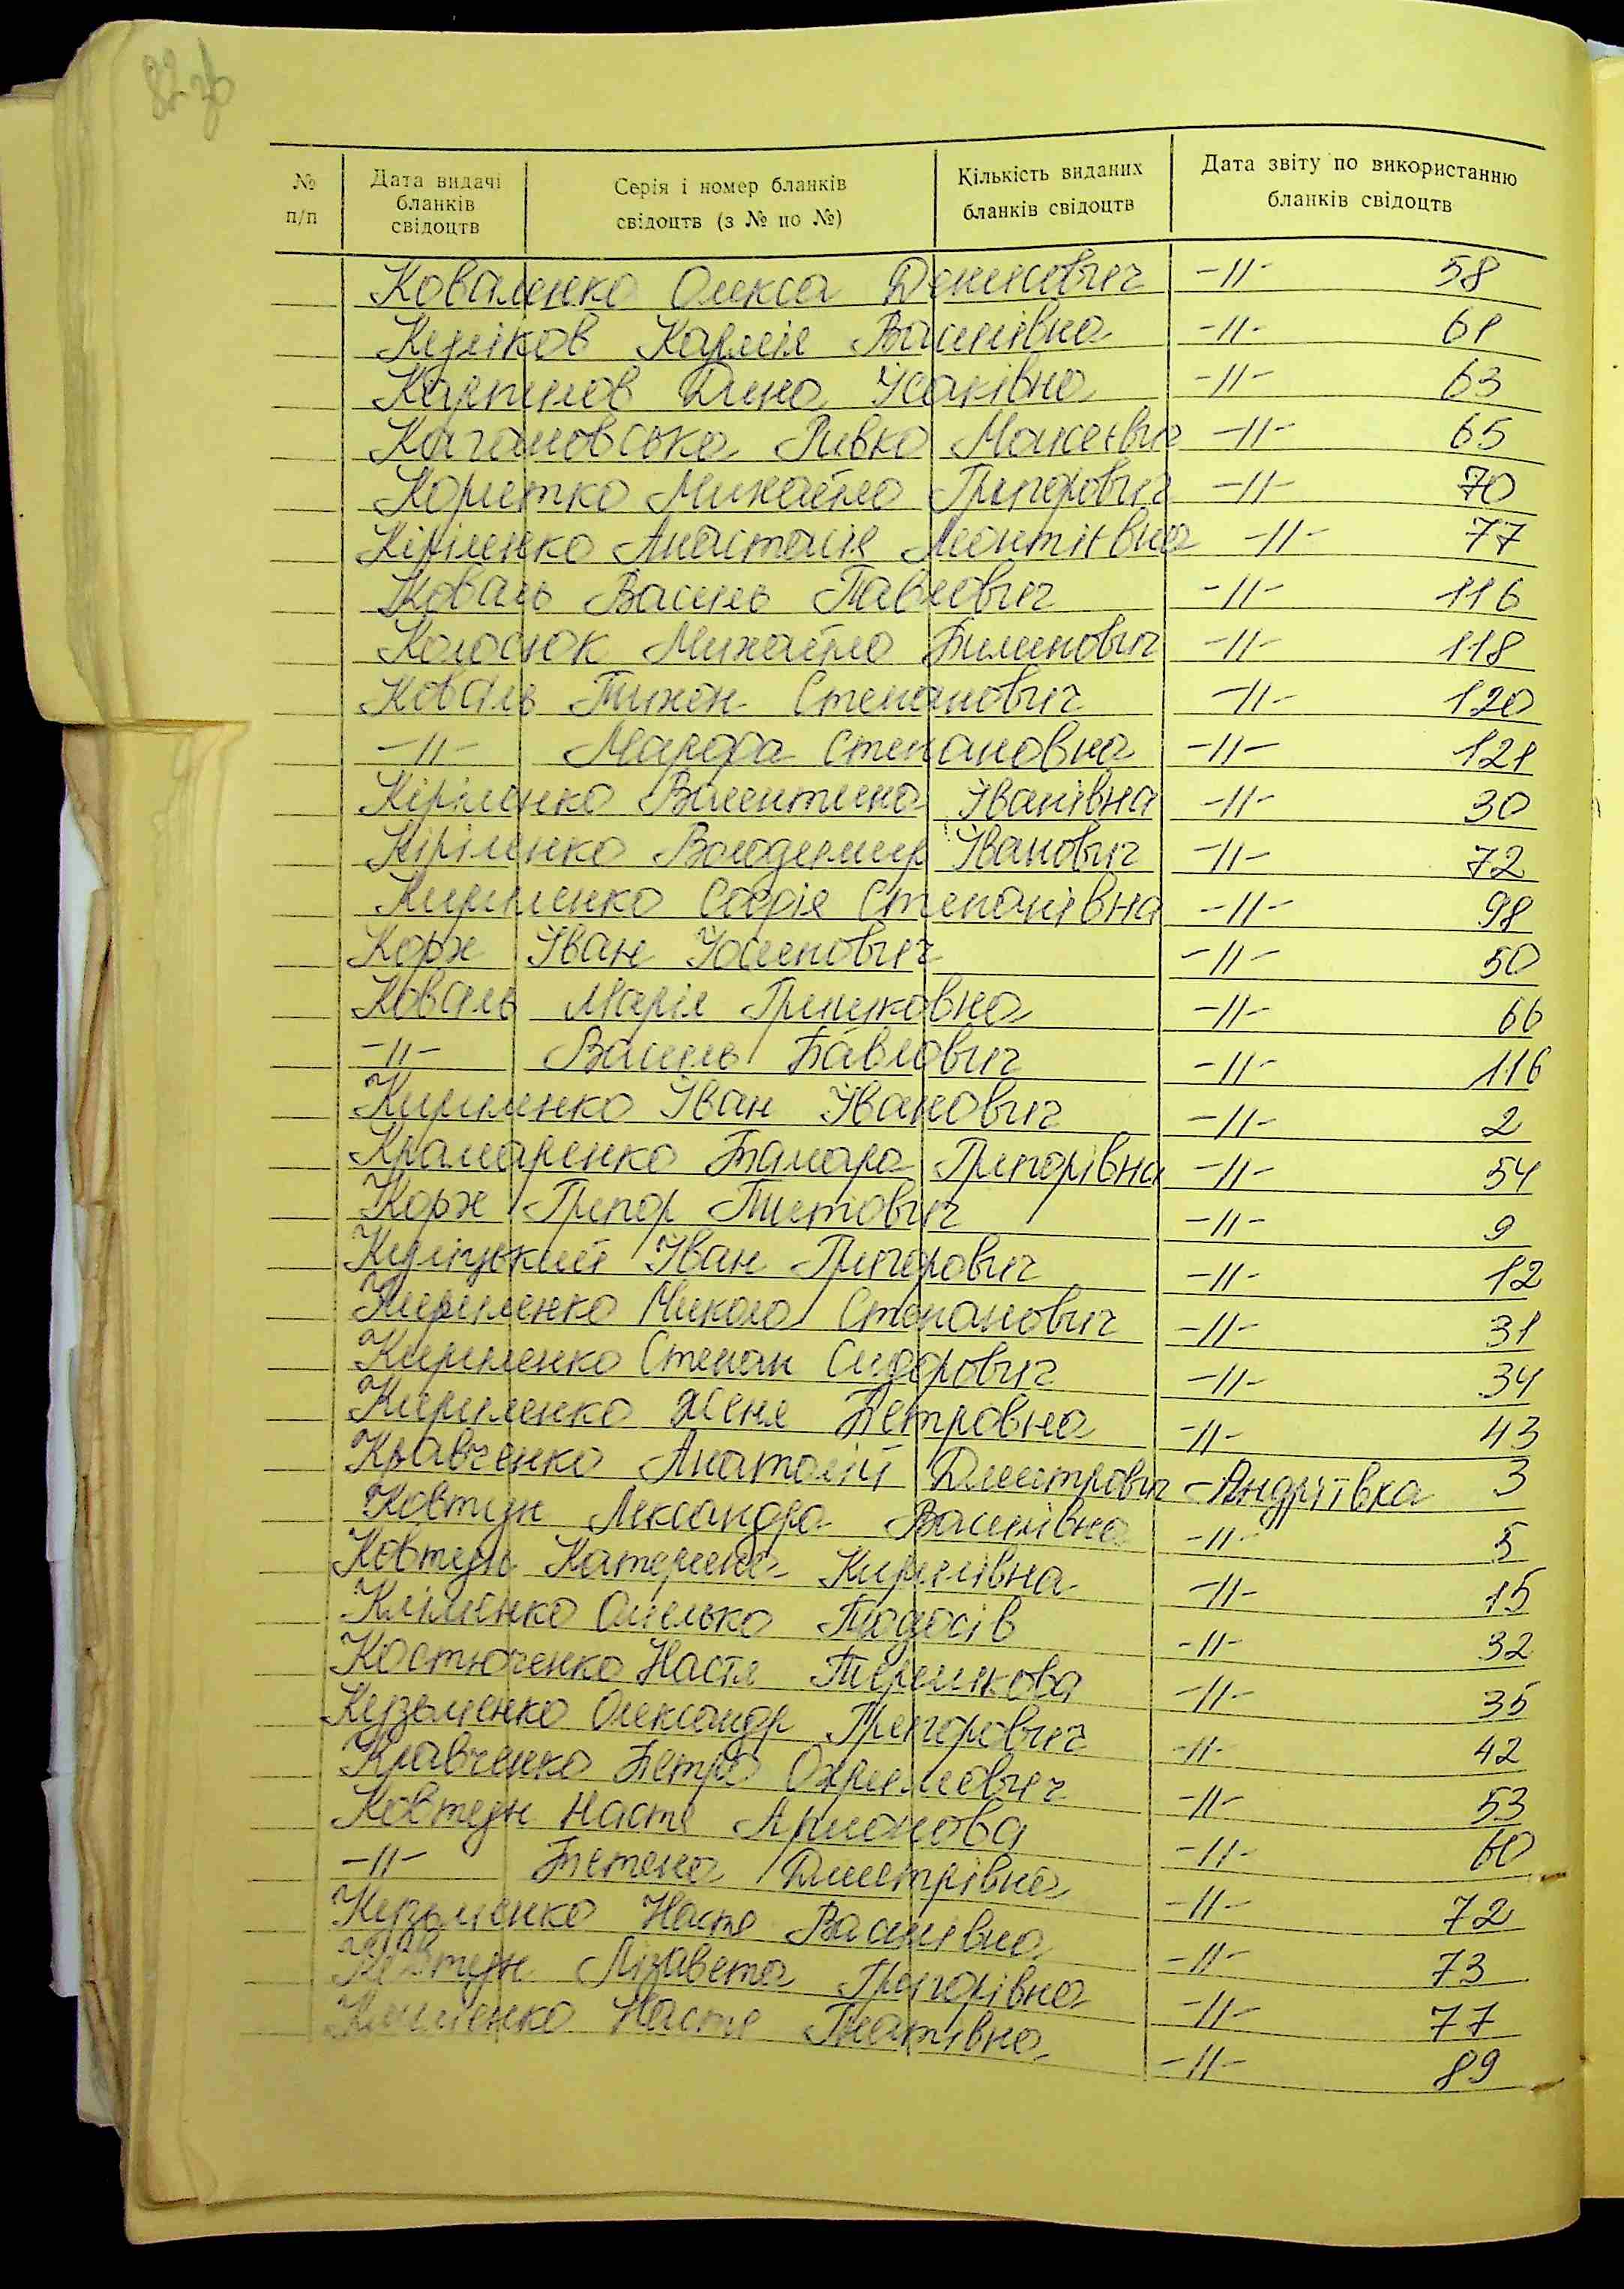 82 зв
№ п/п
Дата видачі бланків свідоцтв
Серія і номер бланків свідоцтв (з № по №)
Кількість виданих бланків свідоцтв
Дата звіту по використанню бланків свідоцтв
Коваленко Олекса Денисович -//- 58
Куліков Карлія Василівна -//- 61
Карпилов Дина Ісаківна -//- 63
Кагановська Ривка Мойсеївна -//- 65
Коритко Михайло Григорович -//- 70
Кіріленко Анастасія Леонтіївна -//- 77
Коваль Василь Павлович -//- 116
Колосюк Михайло Пилипович -//- 118
Коваль Тихон Степанович -//- 120
-//- Марфа Степановна -//- 121
Кіріленко Валентина Іванівна -//- 30
Кіріленко Володимир Іванович -//- 72
Кириленко Софія Степанівна -//- 98
Корж Іван Йосипович -//- 50
Коваль Марія Гришковна -//- 66
-//- Василь Павлович -//- 116
Кириленко Іван Іванович -//- 2
Крамаренко Тамара Григорівна -//- 54
Корж Григор Титович -//- 9
Куліцький Іван Григорович -//- 12
Кириленко Микола Степанович -//- 31
Кириленко Степан Сидорович -//- 34
Кириленко Женя Петровна -//- 43
Кравченко Анатолій Дмитрович - Андріївка 3
Ковтун Лександра Василівна -//- 5
Ковтун Катерина Кирилівна -//- 15
Кліменко Омелько Тодосів -//- 32
Костюченко Настя Терешкова -//- 35
Кузьменко Олександр Григорович -//- 42
Кравченко Петро Охрімович -//- 53
Ковтун Настя Аршонова -//- 60
-//- Тетяна Дмитрівна -//- 72
Кузьменко Настя Василівна -//- 73
Ковтун Лізавета Григорівна -//- 77
Клименко Настя Гнатівна -//- 89